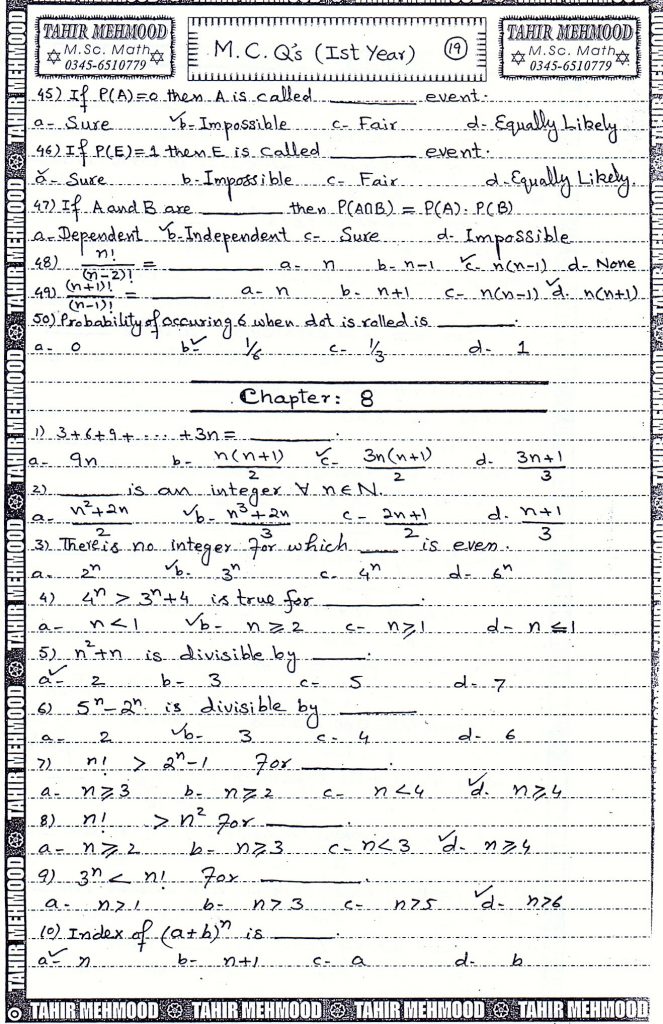 TAHIR MEHMOOD
M.Sc. Math
0345-6510779
M.C.Q's (Ist Year) 19
TAHIR MEHMOOD
M.Sc. Math
0345-6510779
45) If P(A)=0 then A is called ______ event.
a- Sure ✓b- Impossible c- Fair d- Equally Likely
46) If P(E)=1 then E is called ______ event.
✓a- Sure b- Impossible c- Fair d- Equally Likely.
47) If A and B are ______ then P(A∩B) = P(A). P(B)
a- Dependent ✓b- Independent c- Sure d- Impossible
48) n!/(n-2)! = ______ a- n b- n-1 ✓c- n(n-1) d- None
49) (n+1)!/(n-1)! = ______ a- n b- n+1 c- n(n-1) ✓d. n(n+1)
50) Probability of occuring 6 when dot is rolled is ______.
a- 0 ✓b- 1/6 c- 1/3 d- 1
Chapter: 8
1) 3+6+9+ .... +3n = ______.
a- 9n b- n(n+1)/2 ✓c- 3n(n+1)/2 d- 3n+1/3
2) ______ is an integer ∀ n∈N.
a- n²+2n/2 ✓b- n³+2n/3 c- 2n+1/2 d. n+1/3
3) There is no integer for which ______ is even.
a. 2ⁿ ✓b. 3ⁿ c. 4ⁿ d- 6ⁿ
4) 4ⁿ > 3ⁿ+4 is true for ______.
a- n<1 ✓b- n≥2 c- n>1 d- n≤1
5) n²+n is divisible by ______.
✓a- 2 b- 3 c- 5 d- 7
6) 5ⁿ-2ⁿ is divisible by ______
a- 2 ✓b- 3 c- 4 d- 6
7) n! > 2ⁿ-1 for ______.
a- n≥3 b- n≥2 c- n<4 ✓d. n≥4
8) n! > n² for ______.
a- n≥2 b- n≥3 c- n<3 ✓d- n≥4
9) 3ⁿ < n! for ______.
a- n>1 b- n>3 c- n>5 ✓d- n>6
10) Index of (a+b)ⁿ is ______.
✓a- n b- n+1 c- a d- b
TAHIR MEHMOOD TAHIR MEHMOOD TAHIR MEHMOOD TAHIR MEHMOOD
TAHIR MEHMOOD TAHIR MEHMOOD TAHIR MEHMOOD TAHIR MEHMOOD TAHIR MEHMOOD TAHIR MEHMOOD